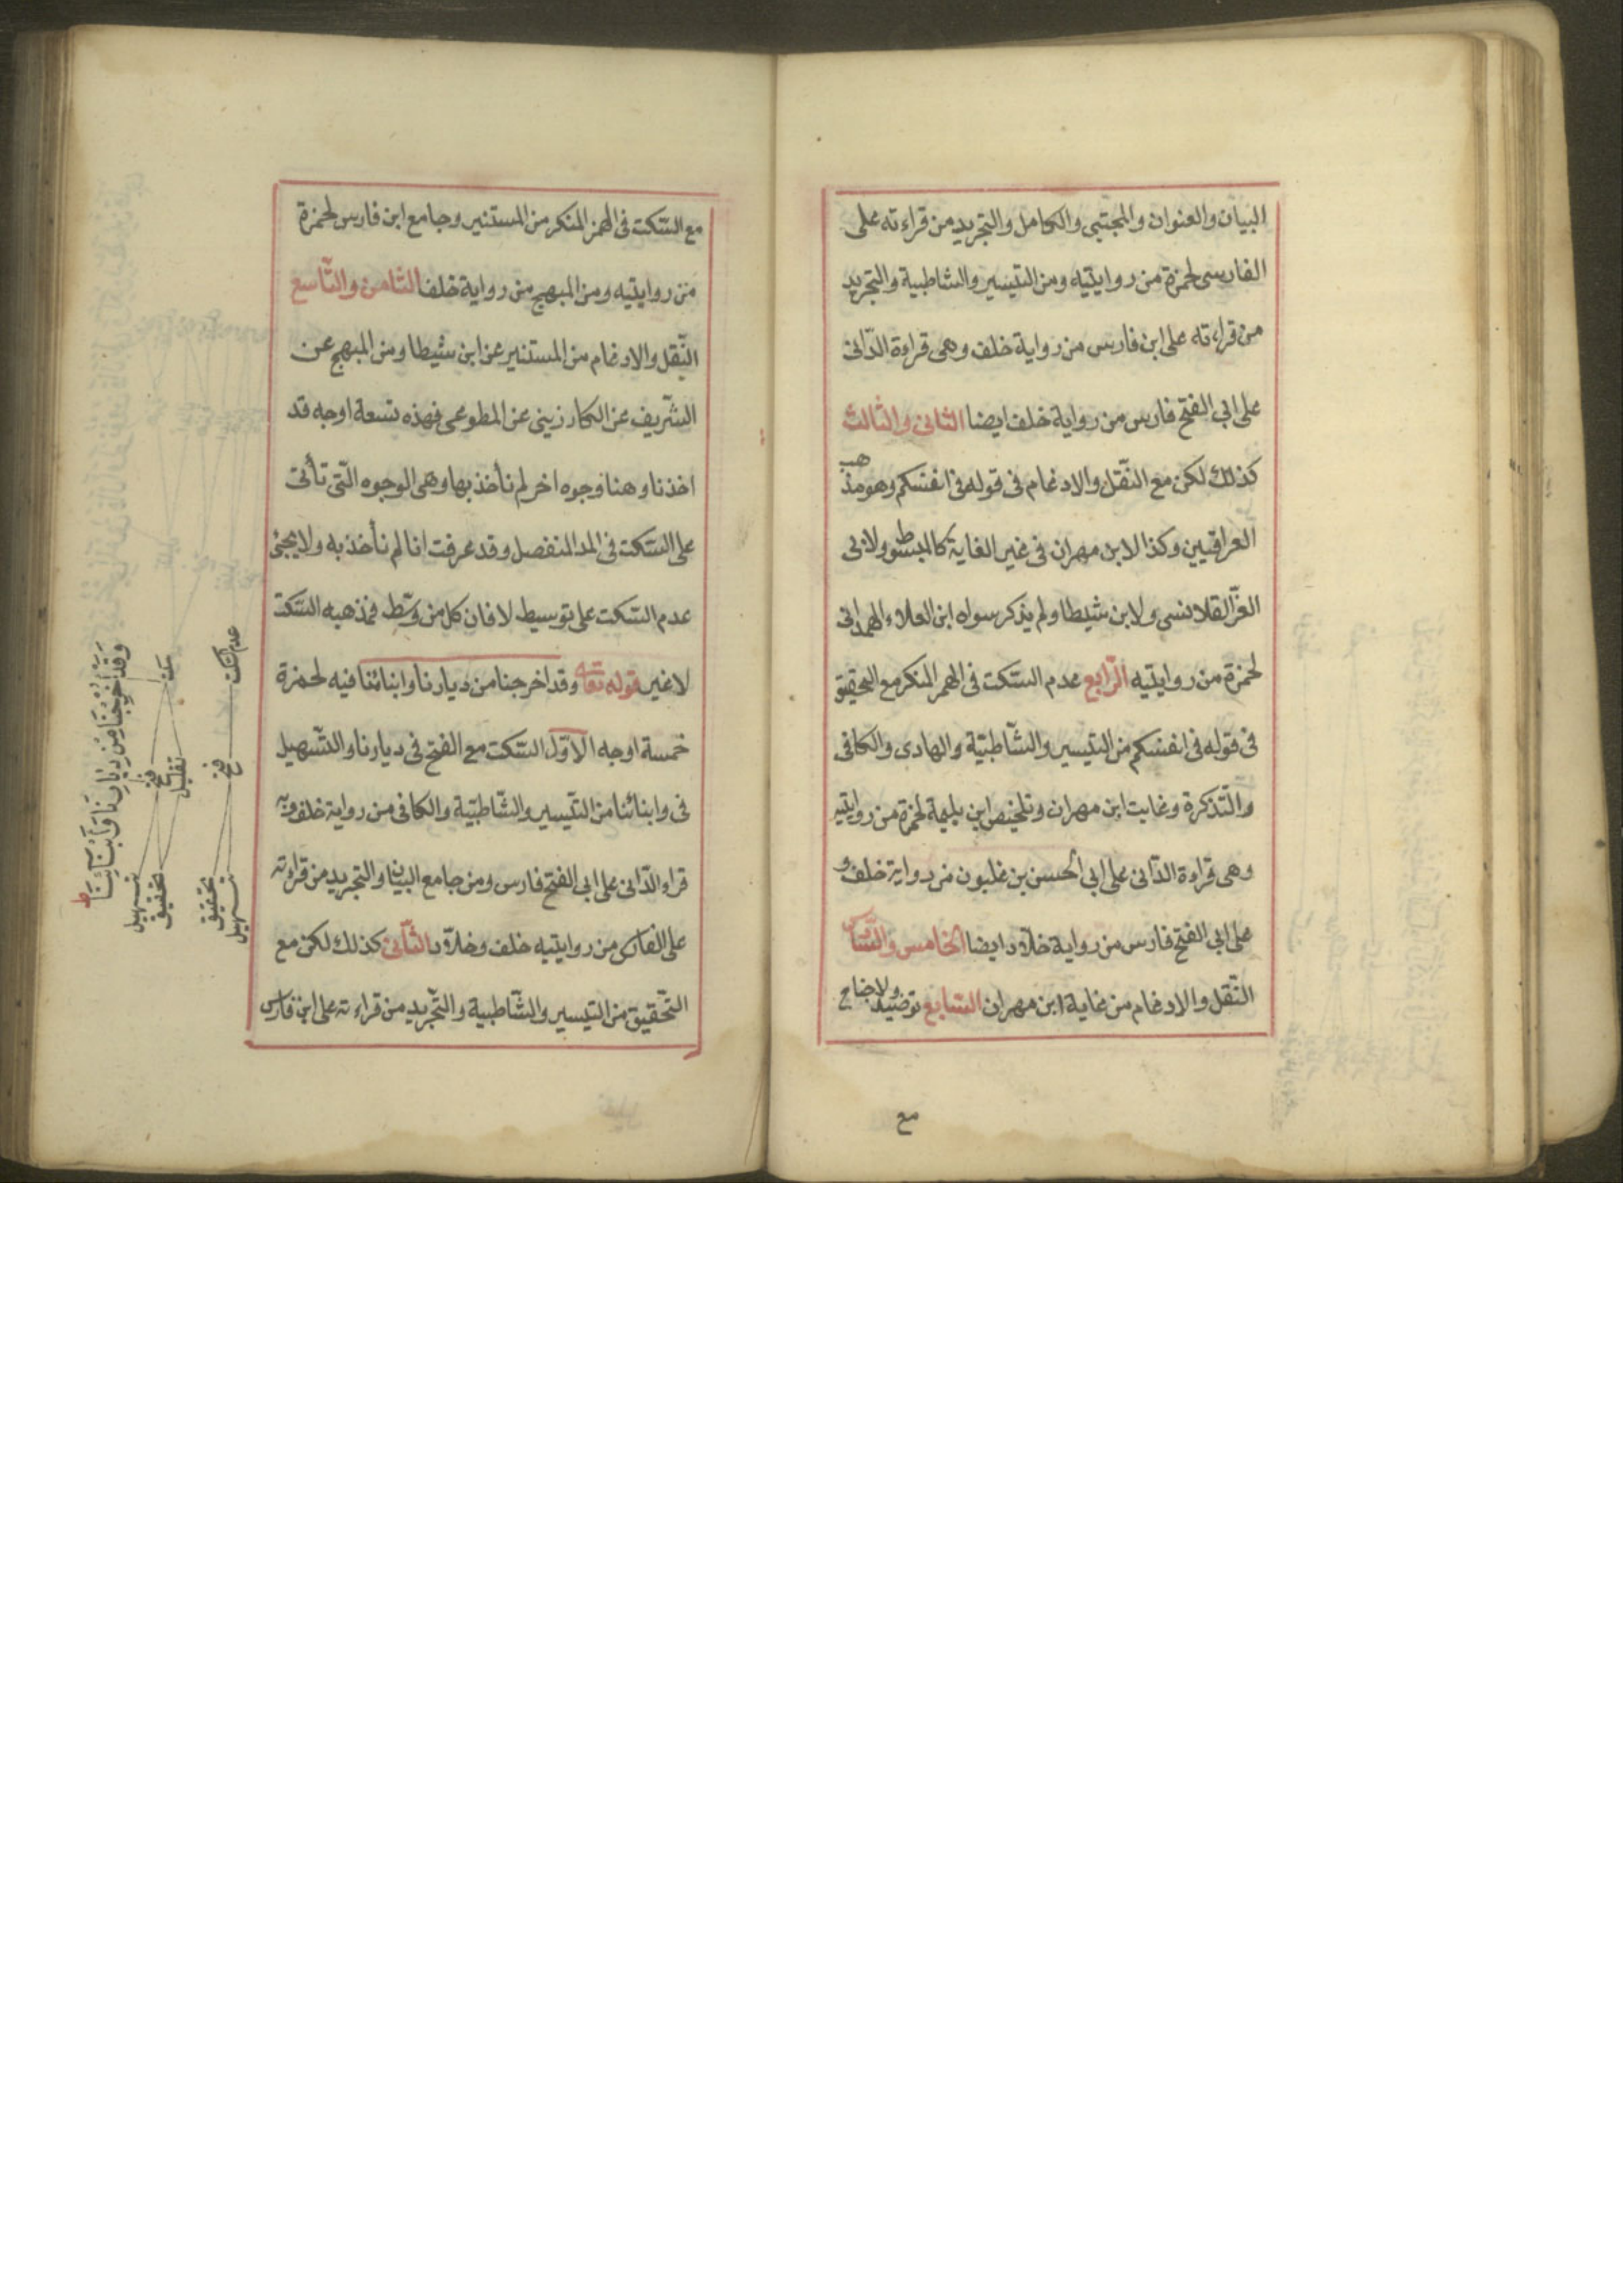 البيان والعنوان والمجتبى والكامل والتجريد من قراءته على
الفارسى لحمزة من روايتيه ومن التيسير والشاطبية والتجريد
من قراءته على ابن فارس من رواية خلف وهى قراءة الدّانى
على ابى الفتح فارس من رواية خلف ايضا الثانى والثالث
كذلك لكن مع النّقل والادغام فى قوله فى انفسكم وهو مذهب
العراقيين وكذا لابن مهران فى غير الغاية كالمبسوط ولابى
العزّ القلانسى ولابن شيطا ولم يذكر سواه ابن العلاء الهمدانى
لحمزة من روايتيه الرّابع عدم السّكت فى الهمز المنكر مع التحقيق
فى قوله فى انفسكم من التيسير والشّاطبيّة والهادى والكافى
والتّذكرة وغايت ابن مهران وتلخيص ابن بليمة لحمزة من روايتيه
وهى قراءة الدّانى على ابى الحسن بن غلبون من رواية خلف و
على ابى الفتح فارس من رواية خلّاد ايضا الخامس والسّادس
النّقل والادغام من غاية ابن مهران السّابع توسّط ولا ضاح
مع
مع السّكت فى الهمز المنكر من المستنير وجامع ابن فارس لحمزة
من روايتيه ومن المبهج من رواية خلف الثّامن والتّاسع
النّقل والادغام من المستنير عن ابن شيطا ومن المبهج عن
الشّريف عن الكارزينى عن المطوعى فهذه تسعة اوجه قد
اخذنا وهنا وجوه اخر لم نأخذ بها وهى الوجوه الّتى تأتى
على السّكت فى المد المنفصل وقد عرفت انا لم نأخذ به ولا يجئ
عدم السّكت على توسيط لا فان كل من وسّط فمذهبه السّكت
لا غير قوله تعالى وقد اخرجنا من ديارنا وابنائنا فيه لحمزة
خمسة اوجه الاوّل السّكت مع الفتح فى ديارنا والتّسهيل
فى وابنائنا من التّيسير والشّاطبيّة والكافى من رواية خلف وبه
قراء الدّانى على ابى الفتح فارس ومن جامع البيان والتجريد من قراءته
على الفارسى من روايتيه خلف وخلّاد الثّانى كذلك لكن مع
التّحقيق من التيسير والشّاطبية والتّجريد من قراءته على ابن فارس
وَقَدْ اُخْرِجْنَا مِنْ دِيَارِنَا وَاَبْنَآئِنَا ط
سكت
فتح
تقليل
تسهيل
تحقيق
عدم السّكت
فتح
تحقيق
تسهيل